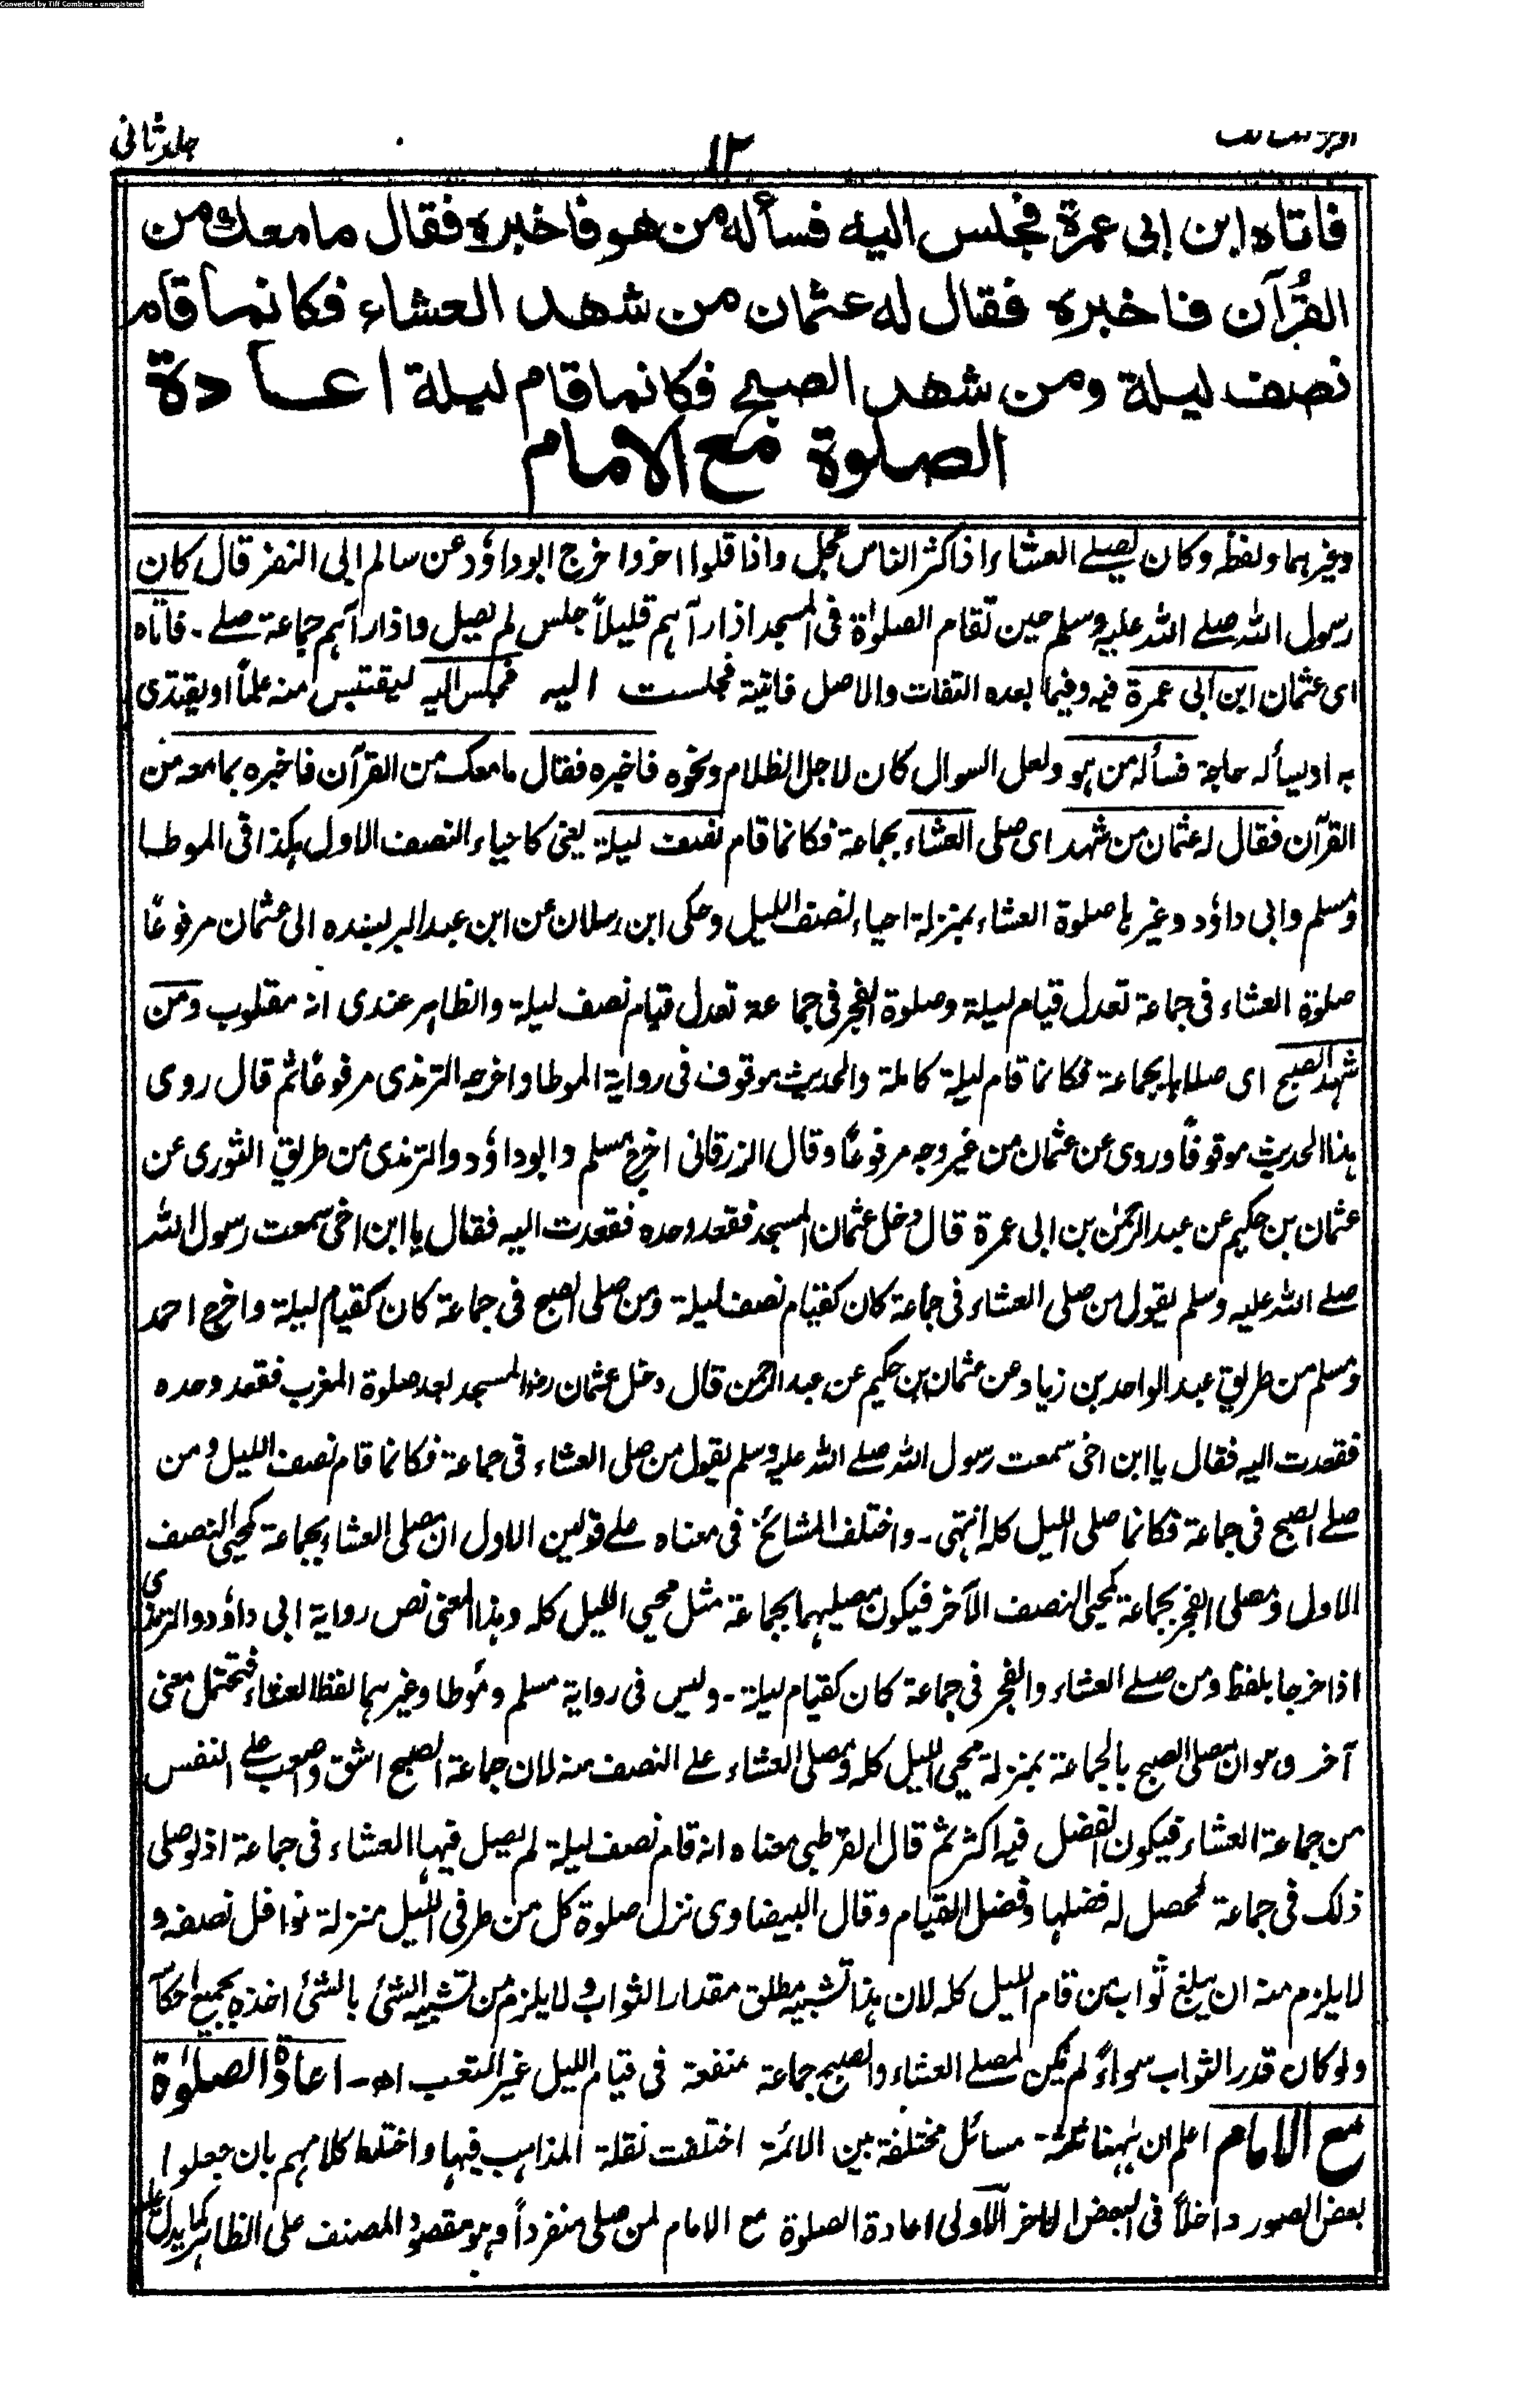 Converted by Tiff Combine - unregistered
جلد ثانی
١٢
اوجز المسالک
فاتاه ابن ابی عمرة فجلس الیه فسأله من هو فاخبره فقال ما معك من
القُرآن فاخبره فقال له عثمان من شهد العشاء فكانما قام
نصف لیلة ومن شهد الصبح فكانما قام لیلة اعادة
الصلوة مع الامام
وغیرہما ولفظہ وکان یصلے العشاء اذا کثر الناس عجل واذا قلوا اخر واخرج ابوداؤد عن سالم ابی النضر قال کان
رسول اللہ صلے اللہ علیہ وسلم حین تقام الصلوٰة فی المسجد اذا رآہم قلیلاً جلس لم یصل واذا رآہم جماعة صلے - فأتاہ
ای عثمان ابن ابی عمرة فیہ وفیما بعدہ التفات والاصل فاتیتہ فجلست الیہ فجلس الیہ لیقتبس منہ علماً او یقتدی
بہ او یسألہ حاجة فسألہ من ہو ولعل السوال کان لاجل الظلام ونحوہ فاخبرہ فقال ما معک من القرآن فاخبرہ بما معہ من
القرآن فقال لہ عثمان من شہد ای صلی العشاء بجماعة فکانما قام نصف لیلة یعنی کاحیاء النصف الاول ہکذا فی الموطا
ومسلم وابی داؤد وغیرہا صلوة العشاء بمنزلة احیاء نصف اللیل وحکی ابن رسلان عن ابن عبد البر بسندہ الی عثمان مرفوعًا
صلوٰة العشاء فی جماعة تعدل قیام لیلة وصلوة الفجر فی جماعة تعدل قیام نصف لیلة والظاہر عندی انہ مقلوب ومن
شہد الصبح ای صلاہا بجماعة فکانما قام لیلة کاملة والحدیث موقوف فی روایة الموطا واخرجہ الترمذی مرفوعًا ثم قال روی
ہذا الحدیث موقوفًا وروی عن عثمان من غیر وجہ مرفوعًا وقال الزرقانی اخرج مسلم وابوداؤد والترمذی من طریق الثوری عن
عثمان بن حکیم عن عبد الرحمٰن بن ابی عمرة قال دخل عثمان المسجد فقعد وحدہ فقعدت الیہ فقال یا ابن اخی سمعت رسول اللہ
صلے اللہ علیہ وسلم یقول من صلی العشاء فی جماعة کان کقیام نصف لیلة ومن صلی الصبح فی جماعة کان کقیام لیلة واخرج احمد
ومسلم من طریق عبد الواحد بن زیاد عن عثمان بن حکیم عن عبد الرحمن قال دخل عثمان رضؓ المسجد بعد صلوة المغرب فقعد وحدہ
فقعدت الیہ فقال یا ابن اخی سمعت رسول اللہ صلے اللہ علیہ وسلم یقول من صلی العشاء فی جماعة فکانما قام نصف اللیل ومن
صلے الصبح فی جماعة فکانما صلی اللیل کلہ انتہی - واختلف المشائخ فی معناہ علے قولین الاول ان مصلی العشاء بجماعة کمحیی النصف
الاول ومصلی الفجر بجماعة کمحیی النصف الآخر فیکون مصلیہما بجماعة مثل محیی اللیل کلہ وہذا المعنی نص روایة ابی داؤد والترمذی
اذ اخرجا بلفظ ومن صلے العشاء والفجر فی جماعة کان کقیام لیلة - ولیس فی روایة مسلم وموطا وغیرہما لفظ العشاء فتحتمل معنی
آخر وہو ان مصلی الصبح بالجماعة بمنزلة محیی اللیل کلہ ومصلی العشاء علے النصف منہ لان جماعة الصبح اشق واصعب علے النفس
من جماعة العشاء فیکون الفضل فیہ اکثر ثم قال القرطبی معناہ انہ قام نصف لیلة لم یصل فیہا العشاء فی جماعة اذ لو صلی
ذلک فی جماعة لحصل لہ فضلہا وفضل القیام وقال البیضاوی نزل صلوة کل من طرفی اللیل منزلة نوافل نصفہ و
لا یلزم منہ ان یبلغ ثواب من قام اللیل کلہ لان ہذا تشبیہ مطلق مقدار الثواب ولا یلزم من تشبیہ الشئ بالشئ اخذہ بجمیع احکامہ
ولو کان قدر الثواب سواءً لم یکن لمصلے العشاء والصبح جماعة منفعة فی قیام اللیل غیر التعب اھ - اعادة الصلوٰة
مع الامام اعلم ان ہٰہنا ثلٰثة مسائل مختلفة بین الائمة اختلفت نقلة المذاہب فیہا واختلط کلامہم بان جعلوا
بعض الصور داخلاً فی البعض الآخر الاولی اعادة الصلوة مع الامام لمن صلی منفرداً وہو مقصود المصنف علی الظاہر کما یدل علیہ